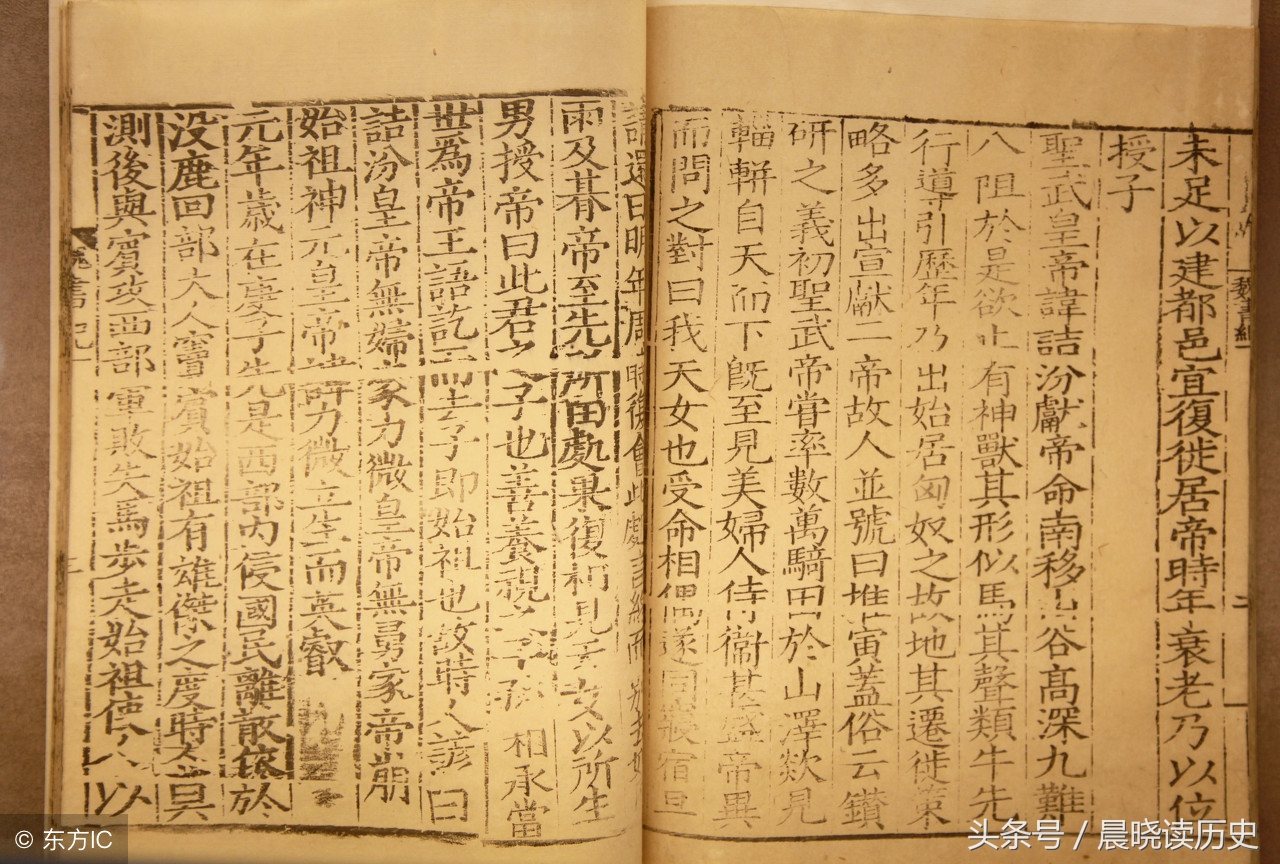 未足以建都邑宜復徙居帝時年衰老乃以位
授子
聖武皇帝諱詰汾獻帝命南移山谷高深九難
八阻於是欲止有神獸其形似馬其聲類牛先
行導引歷年乃出始居匈奴之故地其遷徙策
略多出宣獻二帝故人並號曰推寅蓋俗云鑽
研之義初聖武帝嘗率數萬騎田於山澤欻見
輜軿自天而下旣至見美婦人侍衞甚盛帝異
而問之對曰我天女也受命相偶遂同寢宿旦
請還曰明年周時復會此處言終而別
雨及朞帝至先所田處果復相見天女以所生
男授帝曰此君之子也善養視之子孫相承當
世爲帝王語訖而去子即始祖也故時人諺曰
詰汾皇帝無婦家力微皇帝無舅家帝崩
始祖神元皇帝諱力微立生而英叡
元年歲在庚子先是西部內侵國民離散依於
没鹿回部大人竇賓始祖有雄傑之度時人莫
測後與賓攻西部軍敗失馬步走始祖使人以
魏書紀一
魏書紀一
東方IC
头条号 / 晨晓读历史